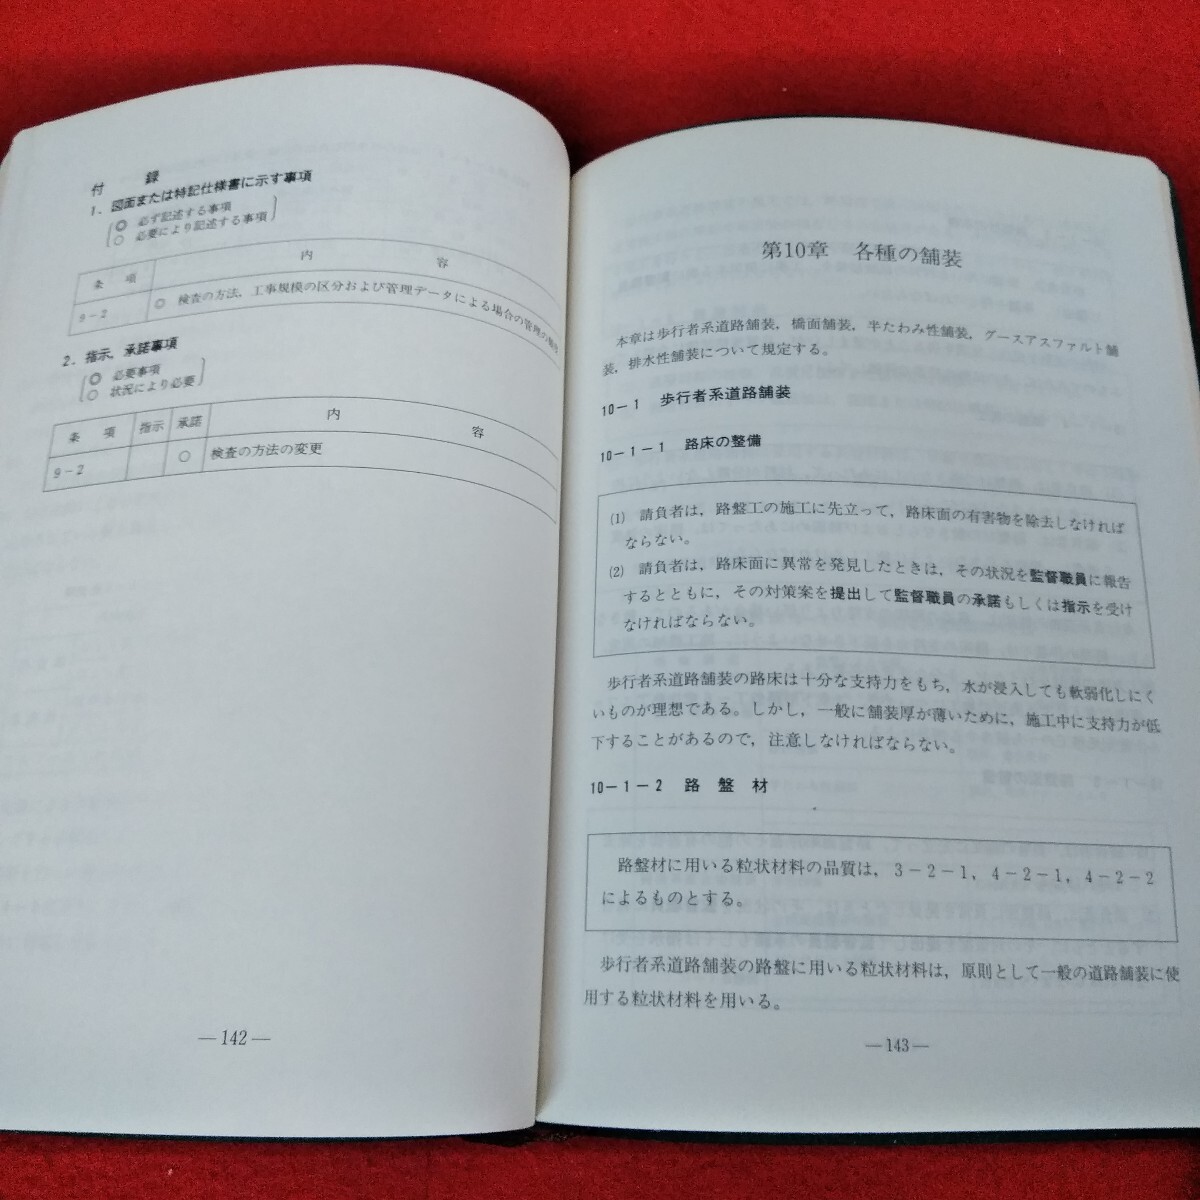 付　録
1．図面または特記仕様書に示す事項
◎　必ず記述する事項
○　必要により記述する事項
条　項　内　容
9－2　◎　検査の方法，工事規模の区分および管理データによる場合の管理の
2．指示，承諾事項
◎　必要事項
○　状況により必要
条　項　指示　承諾　内　容
9－2　○　検査の方法の変更
―142―
第10章　各種の舗装
本章は歩行者系道路舗装，橋面舗装，半たわみ性舗装，グースアスファルト舗
装，排水性舗装について規定する。
10－1　歩行者系道路舗装
10－1－1　路床の整備
(1)　請負者は，路盤工の施工に先立って，路床面の有害物を除去しなければ
ならない。
(2)　請負者は，路床面に異常を発見したときは，その状況を監督職員に報告
するとともに，その対策案を提出して監督職員の承諾もしくは指示を受け
なければならない。
歩行者系道路舗装の路床は十分な支持力をもち，水が浸入しても軟弱化しにく
いものが理想である。しかし，一般に舗装厚が薄いために，施工中に支持力が低
下することがあるので，注意しなければならない。
10－1－2　路　盤　材
路盤材に用いる粒状材料の品質は，3－2－1，4－2－1，4－2－2
によるものとする。
歩行者系道路舗装の路盤に用いる粒状材料は，原則として一般の道路舗装に使
用する粒状材料を用いる。
―143―